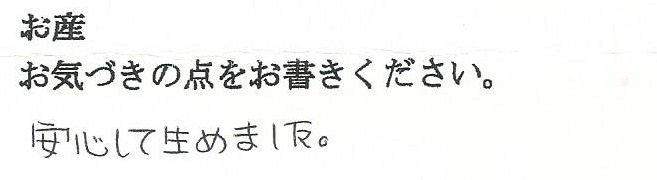 お産
お気づきの点をお書きください。
安心して生めました。